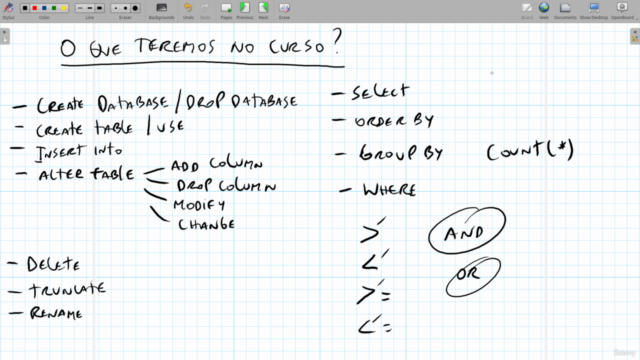 Stylus
Color
Line
Eraser
Backgrounds
Undo
Redo
Pages
Previous
Next
Erase
Board
Web
Documents
Show Desktop
OpenBoard
O QUE TEREMOS NO CURSO?
- CREATE DATABASE / DROP DATABASE
- CREATE TABLE / USE
- INSERT INTO
- ALTER TABLE
ADD COLUMN
DROP COLUMN
MODIFY
CHANGE
- DELETE
- TRUNCATE
- RENAME
- SELECT
- ORDER BY
- GROUP BY COUNT(*)
- WHERE
>
<
>=
<=
AND
OR